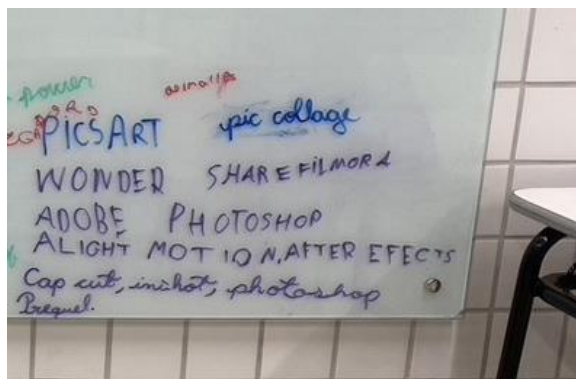 power
PICSART pic collage
WONDER SHAREFILMORA
ADOBE PHOTOSHOP
ALIGHT MOTION, AFTER EFFECTS
Cap cut, inshot, photoshop
Prequel.